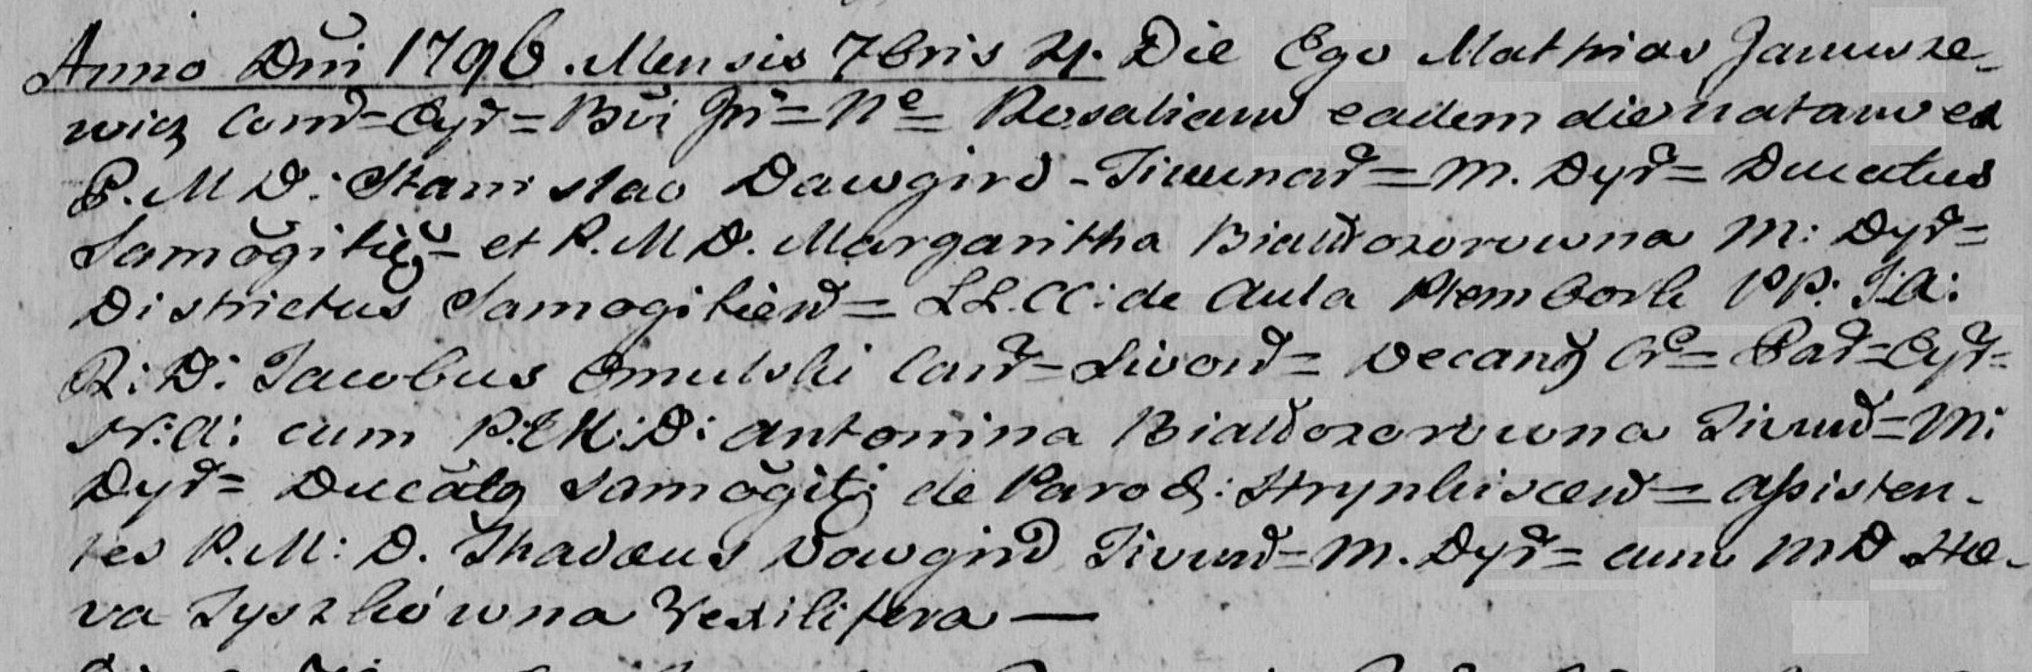 Anno Dni 1796. Mensis 7bris 21. Die Ego Mathias Janusze-
wicz Com̃= Cyr̃= Bvi Jñ= Ne= Rosaliam eadem die natam ex
P. M D: Stanislao Dawgird - Tiwunar̃= M. Dyr̃= Ducatus
Samogitię - et P. M D. Margaritha Białłozorowna M: Dyr̃=
Districtus Samogitień= LL. CC: de Aula Plemborh PP: J. A:
R: D: Jacobus Omulski Can̄= Livoñ= Decang Cr= Par̃= Cyr̃=
N: A: cum P: M: D: Antonina Białłozorowna Tiwuñ= M:
Dyr̃= Ducatg Samogiti: de Paroch: Strynhiscen̄= assisten-
tes P. M: D. Thadæus Dowgird Tivuñ= M. Dyr̃= cum M D
va Tyszkówna Vexilifera —